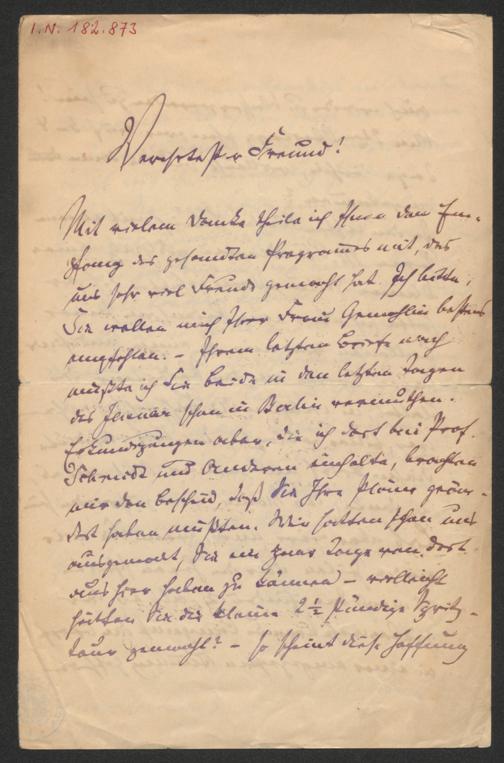 I. N. 182.873
Verehrtester Freund!
Mit vielem Danke theile ich Ihnen den Em-
pfang des gesandten Programmes mit, das
uns sehr viel Freude gemacht hat. Ich bitte,
Sie wollen mich Ihrer Frau Gemahlin bestens
empfehlen. – Ihrem letzten Briefe nach
mußte ich Sie beide in den letzten Tagen
des Januar schon in Berlin vermuthen.
Erkundigungen aber, die ich dort bei Prof.
Schmidt und Anderen einholte, brachten
mir den Bescheid, daß Sie Ihre Pläne geän-
dert haben mußten. Wir hatten schon uns
ausgemalt, Sie ein paar Tage von dort
aus hier haben zu können – vielleicht
hätten Sie die kleine 2½ stündige Spritz-
tour gemacht? – so scheint diese Hoffnung